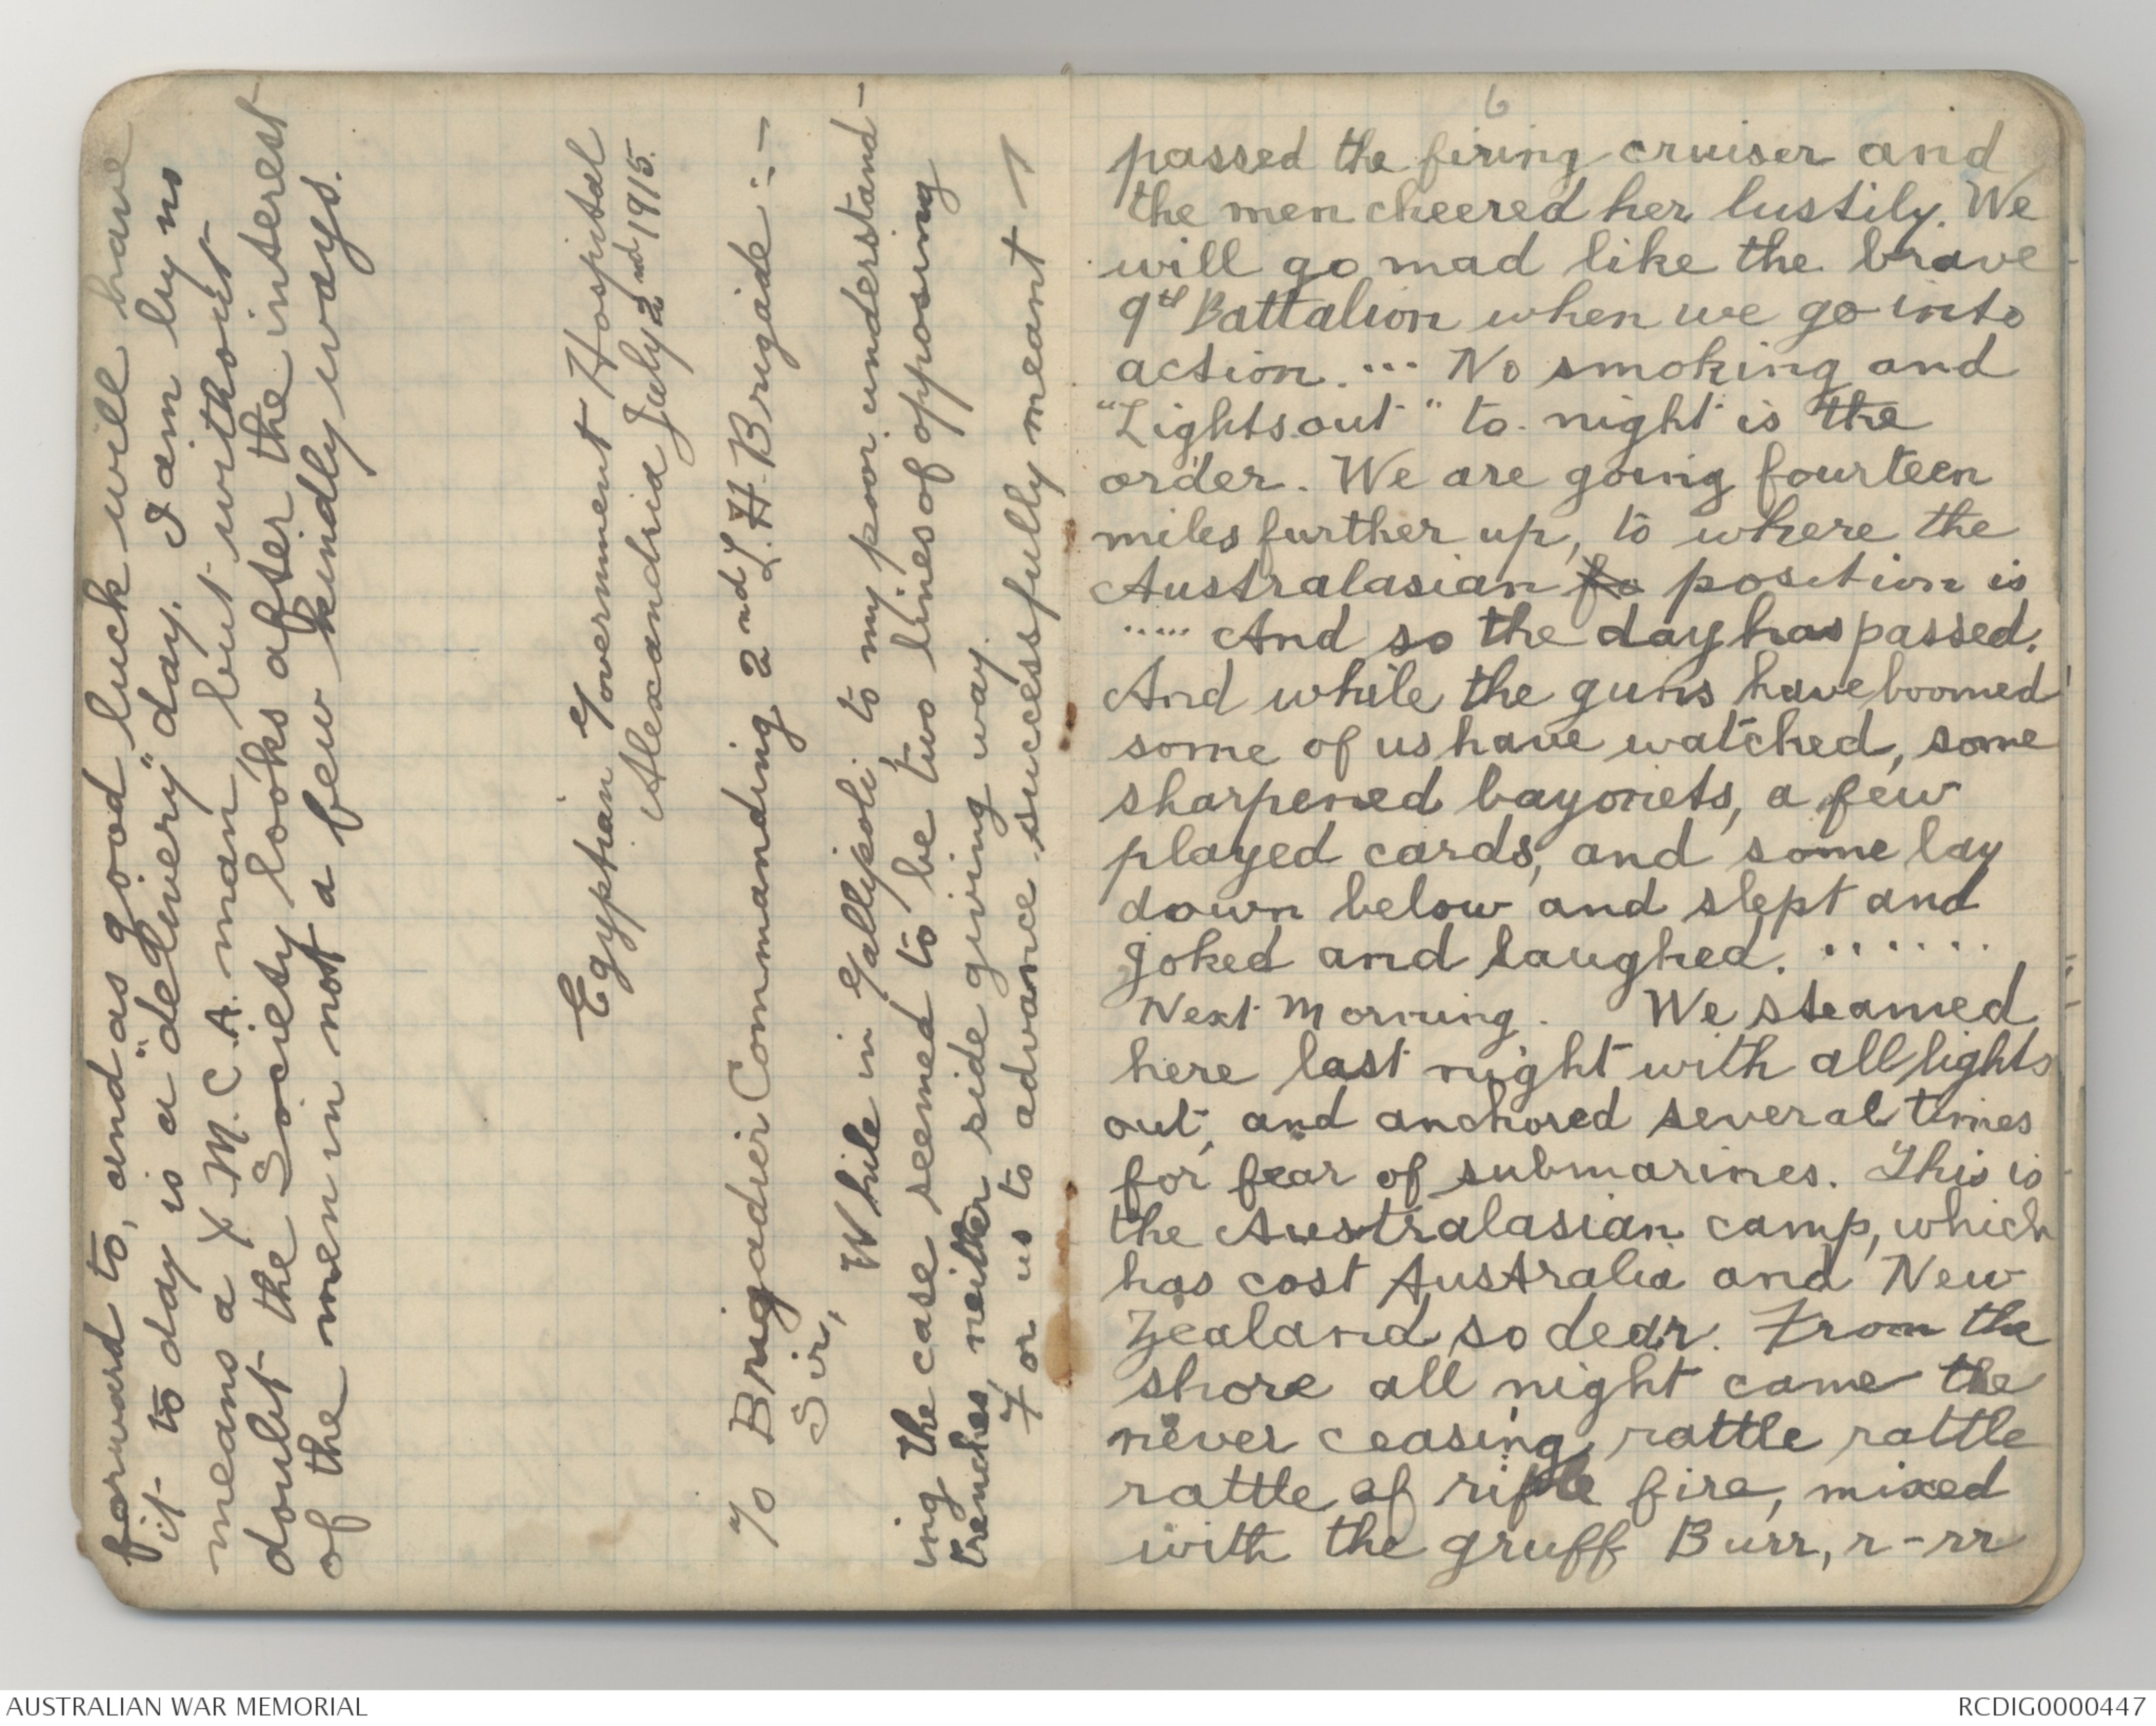 forward to, and as good luck will have
it to day is a "delivery" day. I am by no
means a Y.M.C.A. man but without
doubt the Society looks after the interest
of the men in not a few kindly ways.
Egyptian Government Hospital
Alexandria July 2nd 1915.
To Brigadier Commanding 2nd L.H. Brigade :-
Sir,
While in Gallipoli, to my poor understand-
ing the case seemed to be two lines of opposing
trenches, neither side giving way.
For us to advance successfully meant
6
passed the firing cruiser and
the men cheered her lustily. We
will go mad like the brave
9th Battalion when we go into
action. ... No smoking and
"Lights out" to-night is the
order. We are going fourteen
miles further up, to where the
Australasian fo position is
..... And so the day has passed.
And while the guns have boomed
some of us have watched, some
sharpened bayonets, a few
played cards, and some lay
down below and slept and
joked and laughed. .......
Next Morning. We steamed
here last night with all lights
out, and anchored several times
for fear of submarines. This is
the Australasian camp, which
has cost Australia and New
Zealand so dear. From the
shore all night came the
never ceasing rattle rattle
rattle of rifle fire, mixed
with the gruff Burr, r-rr
AUSTRALIAN WAR MEMORIAL
RCDIG0000447